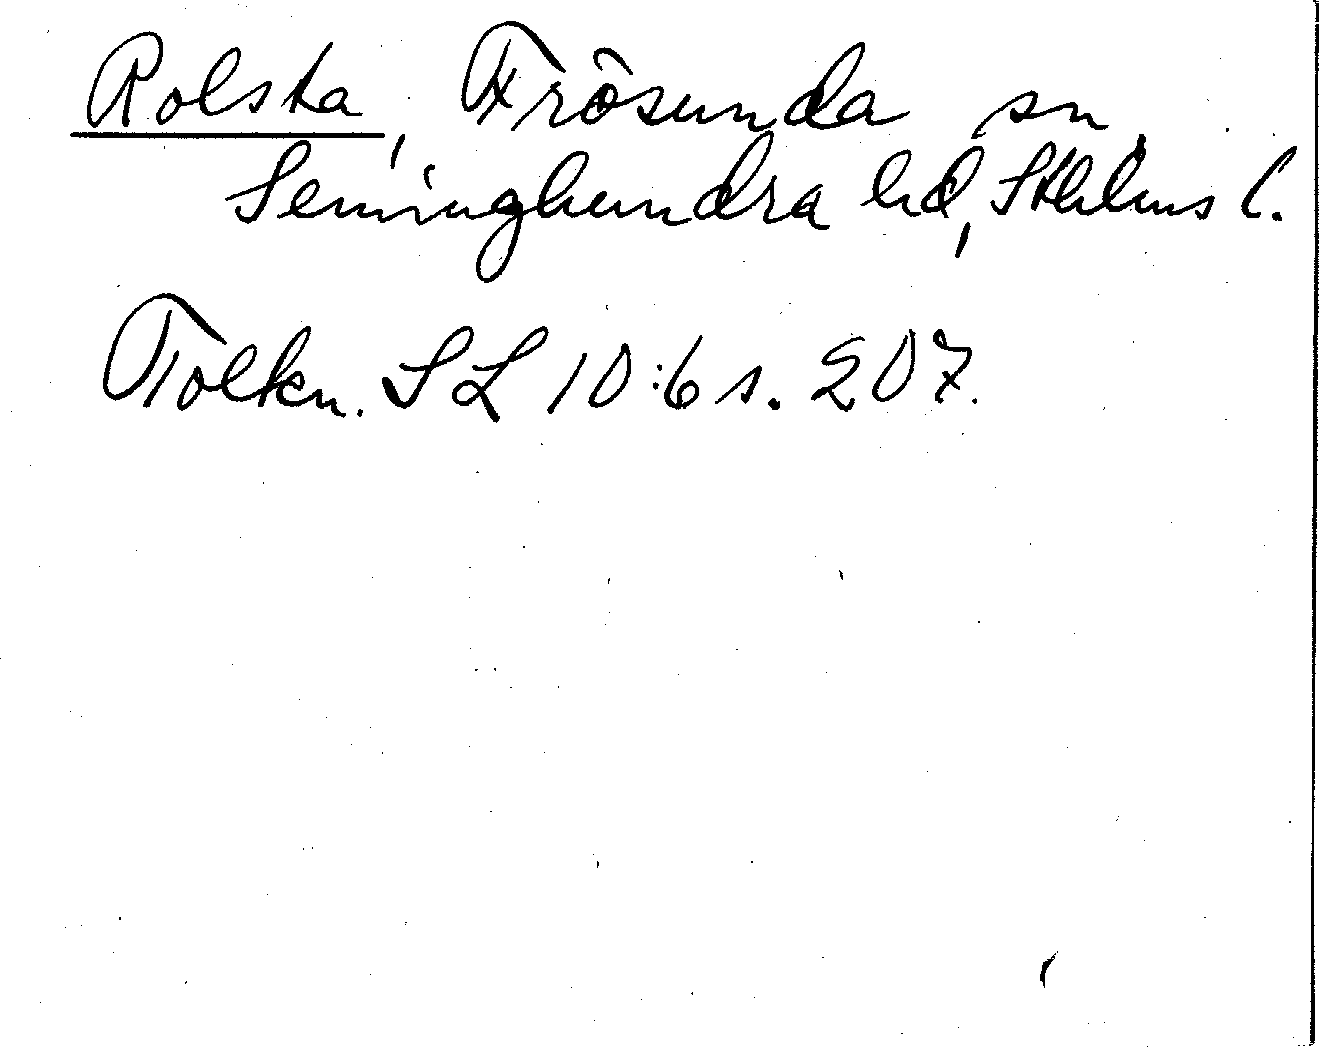 Rolsta, Frösunda sn,
Seminghundra hd, Sthlms l.
Tolkn. SL 10:6 s. 207.